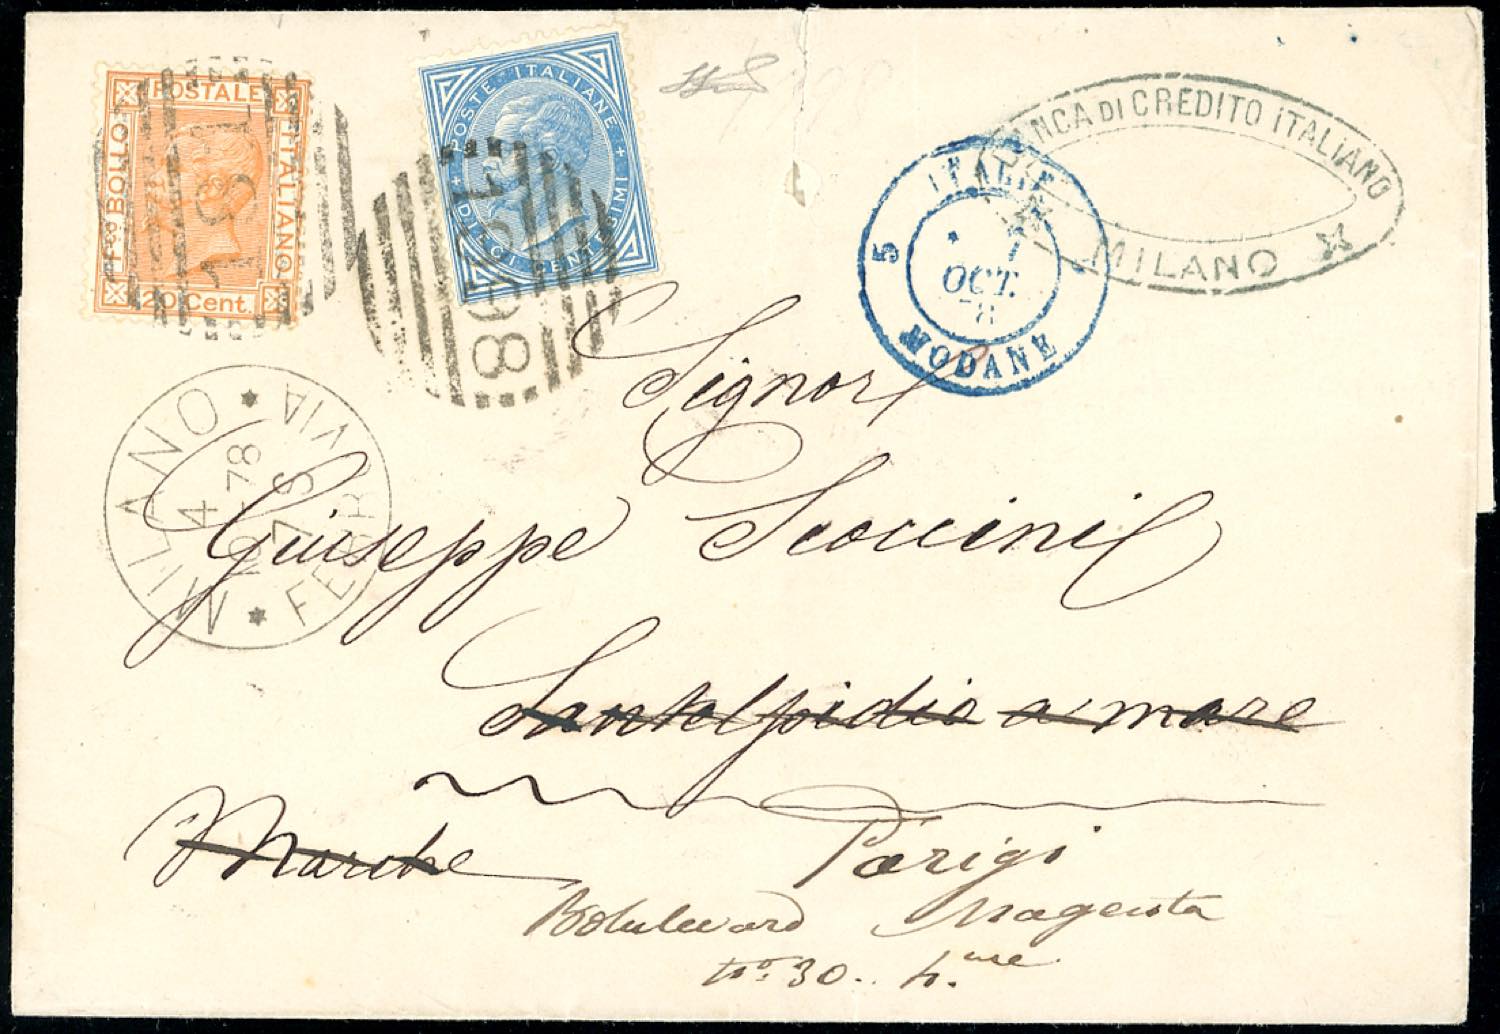 POSTALE
F.co BOLLO
ITALIANO
20 Cent.
POSTE ITALIANE
DIECI CENTESIMI
BANCA DI CREDITO ITALIANO
MILANO
ITALIE
5
OCT.
78
MODANE
MILANO
4
78
7 S
FERROVIA
Signor
Giuseppe Scoccini
Santelpidio a mare
Marche
Parigi
Boulevard Magenta
30